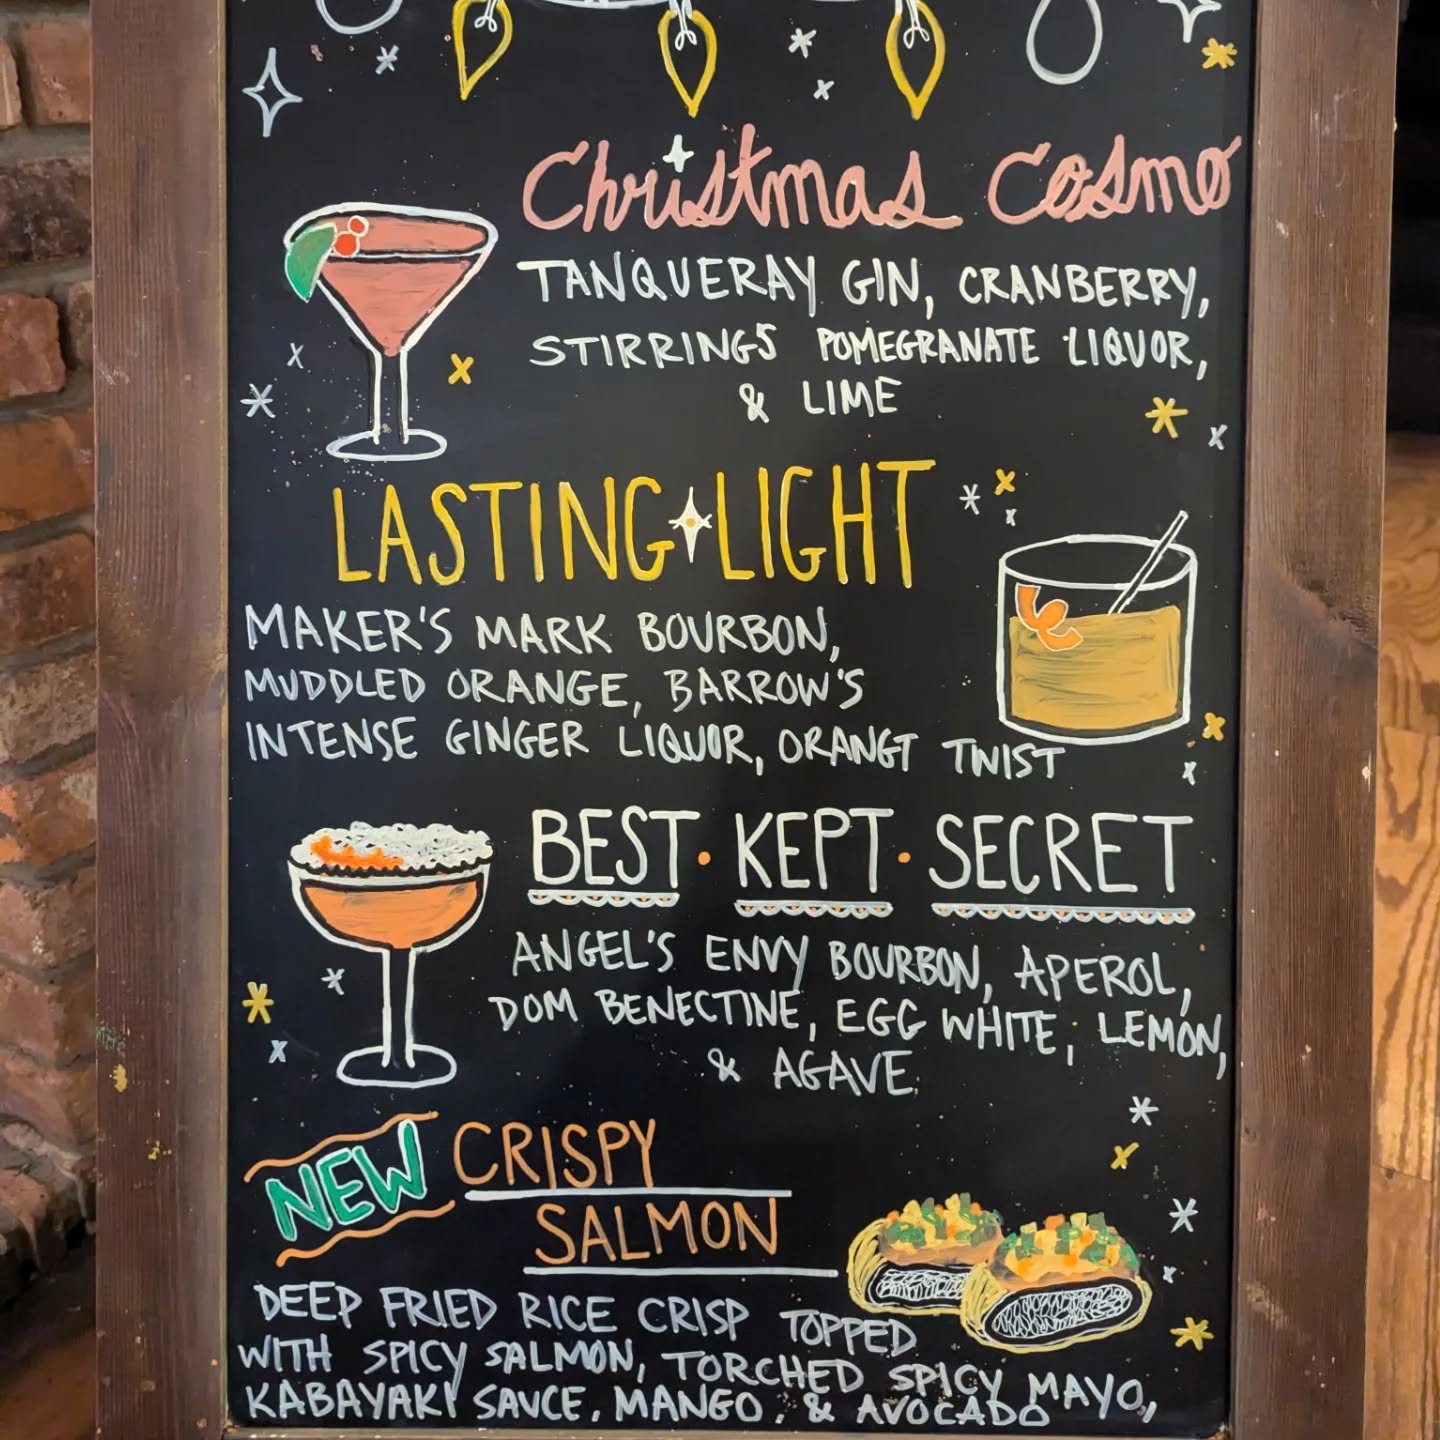 Christmas Cosmo
TANQUERAY GIN, CRANBERRY,
STIRRINGS POMEGRANATE LIQUOR,
& LIME
LASTING LIGHT
MAKER'S MARK BOURBON,
MUDDLED ORANGE, BARROW'S
INTENSE GINGER LIQUOR, ORANGE TWIST
BEST · KEPT · SECRET
ANGEL'S ENVY BOURBON, APEROL,
DOM BENECTINE, EGG WHITE, LEMON,
& AGAVE
NEW CRISPY
SALMON
DEEP FRIED RICE CRISP TOPPED
WITH SPICY SALMON, TORCHED SPICY MAYO,
KABAYAKI SAUCE, MANGO, & AVOCADO